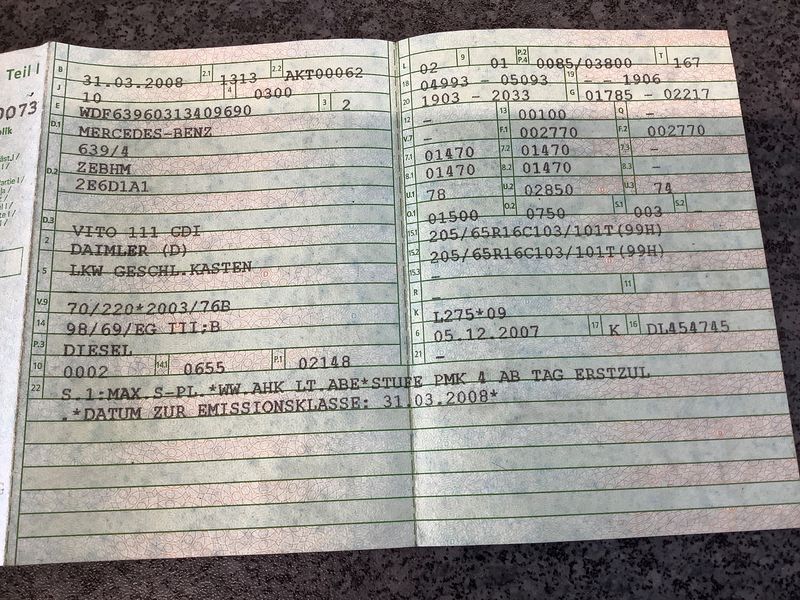 Teil I
0073
B 31.03.2008 2.1 1313 2.2 AKT00062
J 10 4 0300
E WDF63960313409690 3 2
D.1 MERCEDES-BENZ
639/4
D.2 ZEBHM
2E6D1A1
D.3 VITO 111 CDI
2 DAIMLER (D)
5 LKW GESCHL.KASTEN
V.9 70/220*2003/76B
14 98/69/EG III;B
P.3 DIESEL
10 0002 14.1 0655 P.1 02148
L 02 9 01 P.2 P.4 0085/03800 T 167
18 04993 - 05093 19 - - 1906
20 1903 - 2033 G 01785 - 02217
12 - 13 00100 Q -
V.7 - F.1 002770 F.2 002770
7.1 01470 7.2 01470 7.3 -
8.1 01470 8.2 01470 8.3 -
U.1 78 U.2 02850 U.3 74
O.1 01500 O.2 0750 S.1 003 S.2 -
15.1 205/65R16C103/101T(99H)
15.2 205/65R16C103/101T(99H)
15.3 -
R - 11
K L275*09
6 05.12.2007 17 K 16 DL454745
21 -
22 S.1:MAX.S-PL.*WW.AHK LT.ABE*STUFE PMK 4 AB TAG ERSTZUL
.*DATUM ZUR EMISSIONSKLASSE: 31.03.2008*